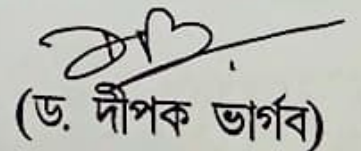 (ড. দীপক ভার্গব)